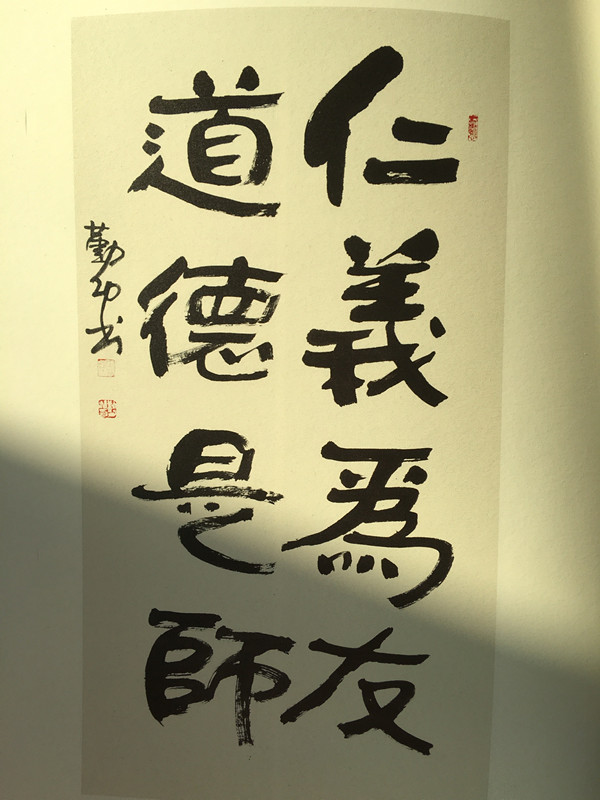 仁義為友
道德是師
勤功书